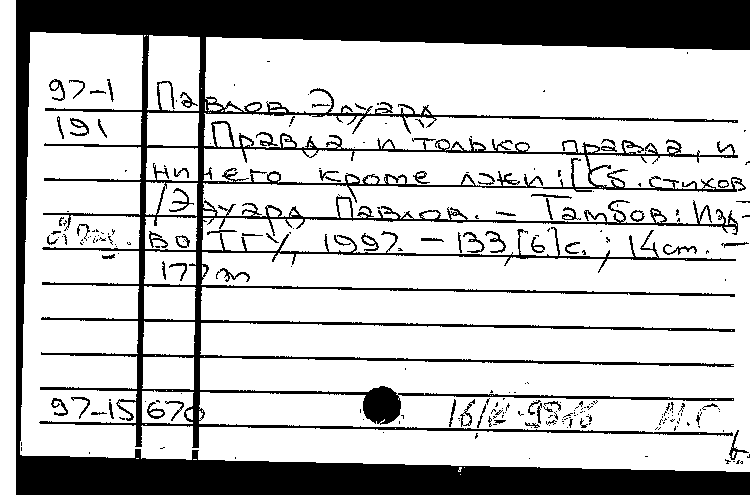 97-1 Павлов, Эдуард
191 Правда, и только правда, и
ничего кроме лжи: [Сб. стихов
/Эдуард Павлов. - Тамбов: Изд-
во ТГУ, 1997. - 133,[6]с.; 14см. -
177 эп
97-15670 16/ 98 М.Г.